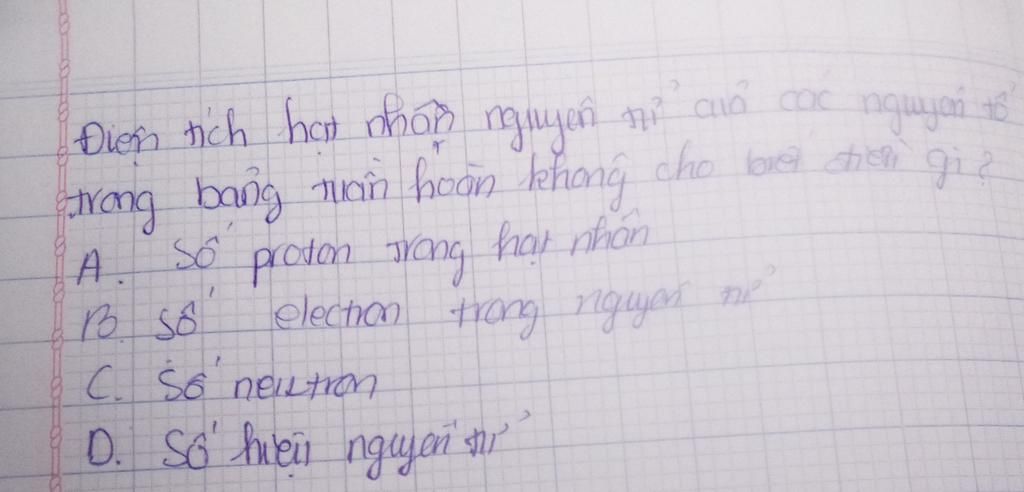 Điện tích hạt nhân nguyên tử của các nguyên tố
trong bảng tuần hoàn không cho biết điều gì?
A. Số proton trong hạt nhân
B. Số electron trong nguyên tử
C. Số neutron
D. Số hiệu nguyên tử